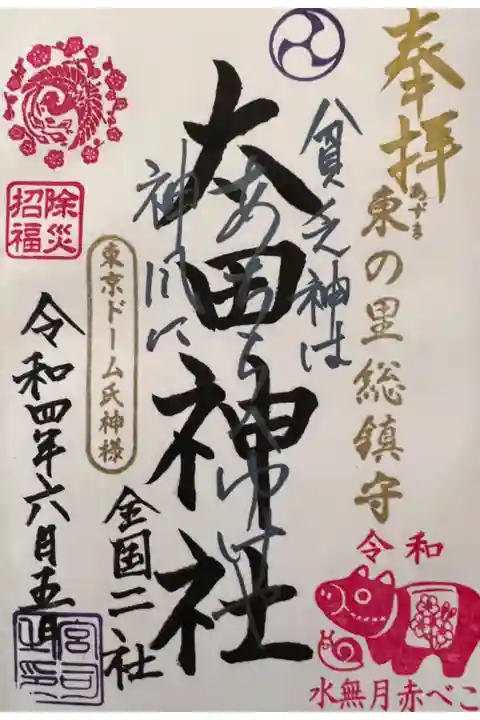 奉拝
東の里総鎮守
あずま
貧乏神は
あちらへゆけや
神風に
太田神社
全国二ノ社
東京ドーム氏神様
除災
招福
令和四年六月五日
宮司
令和
水無月赤べこ